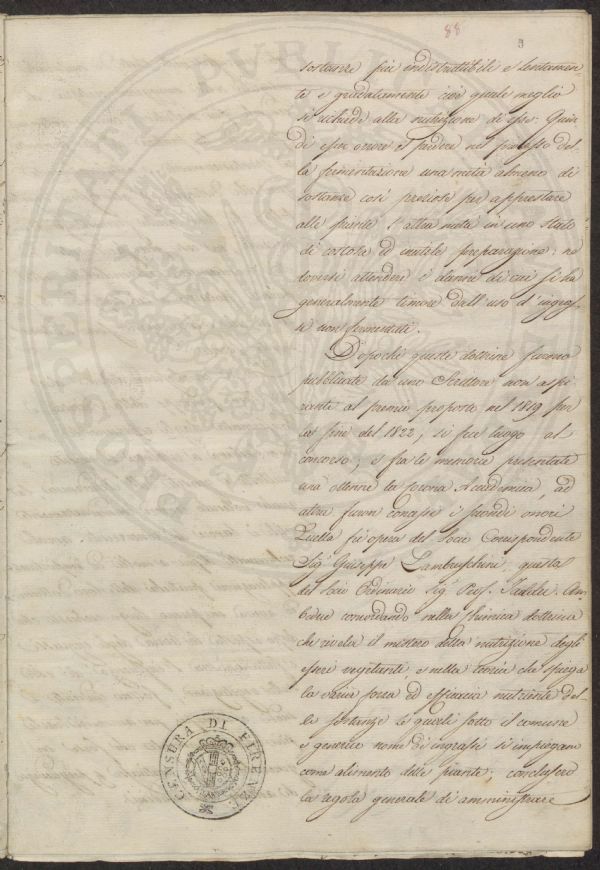 88
3
sostanze più indistruttibili e lentamen-
te e gradatamente cioè quale meglio
si richiede alla nutrizione di esse. Quin-
di esser errore il perdere nel processo del-
la fermentazione una metà almeno di
sostanze così preziose per apprestare
alle piante l'altra metà in uno stato
di costosa ed inutile preparazione: nè
doversi attendere i danni di cui si ha
generalmente timore dall'uso d'ingras-
si non fermentati.
Dopochè queste dottrine furono
pubblicate da uno Scrittore non aspi-
rante al premio proposto nel 1819 per
la fine del 1822, si fece luogo al
concorso, e fra le memorie presentate
una ottenne la corona Accademica, ad
altra furon concessi i secondi onori
Quella fu opera del Socio Corrispondente
Sigr. Giuseppe Lambruschini, questa
del Socio Ordinario Sigr. Prof. Taddei. Am-
bedue concordando nella chimica dottrina
che rivela il mistero della nutrizione degli
esseri vegetanti, e nella teoria che spiega
la varia forza ed efficacia nutriente del-
le sostanze le quali sotto il comune
e generico nome di ingrassi si impiegano
come alimento delle piante; conclusero
la regola generale di amministrare
CENSURA DI FIRENZE
PROSPERITATI PUBLI